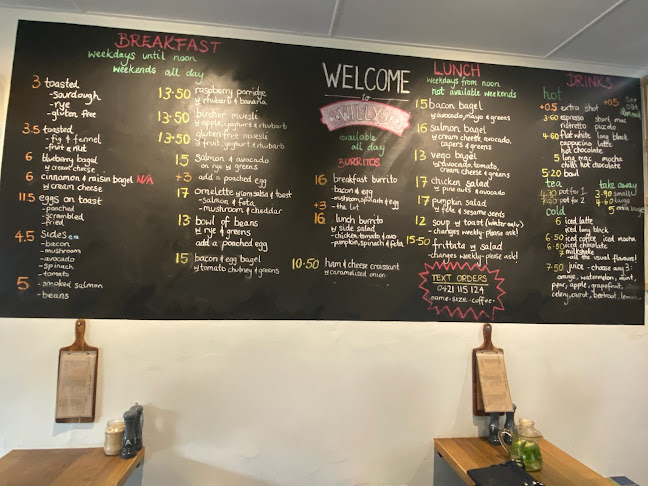 BREAKFAST
weekdays until noon
weekends all day
3 toasted
- sourdough
- rye
- gluten free
3.5 toasted
- fig & fennel
- fruit & nut
6 blueberry bagel
w cream cheese
6 cinnamon & raisin bagel N/A
w cream cheese
11.5 eggs on toast
- poached
- scrambled
- fried
4.5 sides ea
- bacon
- mushroom
- avocado
- spinach
- tomato
5 - smoked salmon
- beans
13.50 raspberry porridge
w rhubarb & banana
13.50 bircher muesli
w apple, yoghurt & rhubarb
13.50 gluten free muesli
w fruit, yoghurt & rhubarb
15 salmon & avocado
on rye w greens
+3 add a poached egg
17 omelette w jam salsa & toast
- salmon & feta
- mushroom & cheddar
13 bowl of beans
w rye & greens
add a poached egg
15 bacon & egg bagel
w tomato chutney & greens
WELCOME
to
WILLY'S
available
all day
BURRITOS
16 breakfast burrito
- bacon & egg
- mushroom, spinach & egg
+3 - the lot
16 lunch burrito
w side salad
- chicken, tomato & avo
- pumpkin, spinach & feta
10.50 ham & cheese croissant
w caramelised onion
LUNCH
weekdays from noon
not available weekends
15 bacon bagel
w avocado, mayo & greens
16 salmon bagel
w cream cheese, avocado,
capers & greens
13 vego bagel
w avocado, tomato,
cream cheese & greens
17 chicken salad
w pine nuts & avocado
17 pumpkin salad
w feta & sesame seeds
12 soup w toast (winter only)
- changes weekly- please ask!
15.50 frittata w salad
- changes weekly, please ask!
TEXT ORDERS
0421 115 124
name • size • coffee
DRINKS
hot
+0.5 extra shot +0.5 soy
3.60 espresso short mac
ristretto piccolo
4.60 flat white long black
cappuccino latte
hot chocolate
5 long mac mocha
chilli hot chocolate
5.20 bowl
tea
pot for 1
pot for 2
take away
3.90 small
4.60 large
5 extra large
cold
6 iced latte
iced long black
6.50 iced coffee iced mocha
6.50 iced chocolate
7 milkshake
- all the usual flavours!
7.50 juice - choose any 3:
orange, watermelon, mint,
pear, apple, grapefruit,
celery, carrot, beetroot, lemon